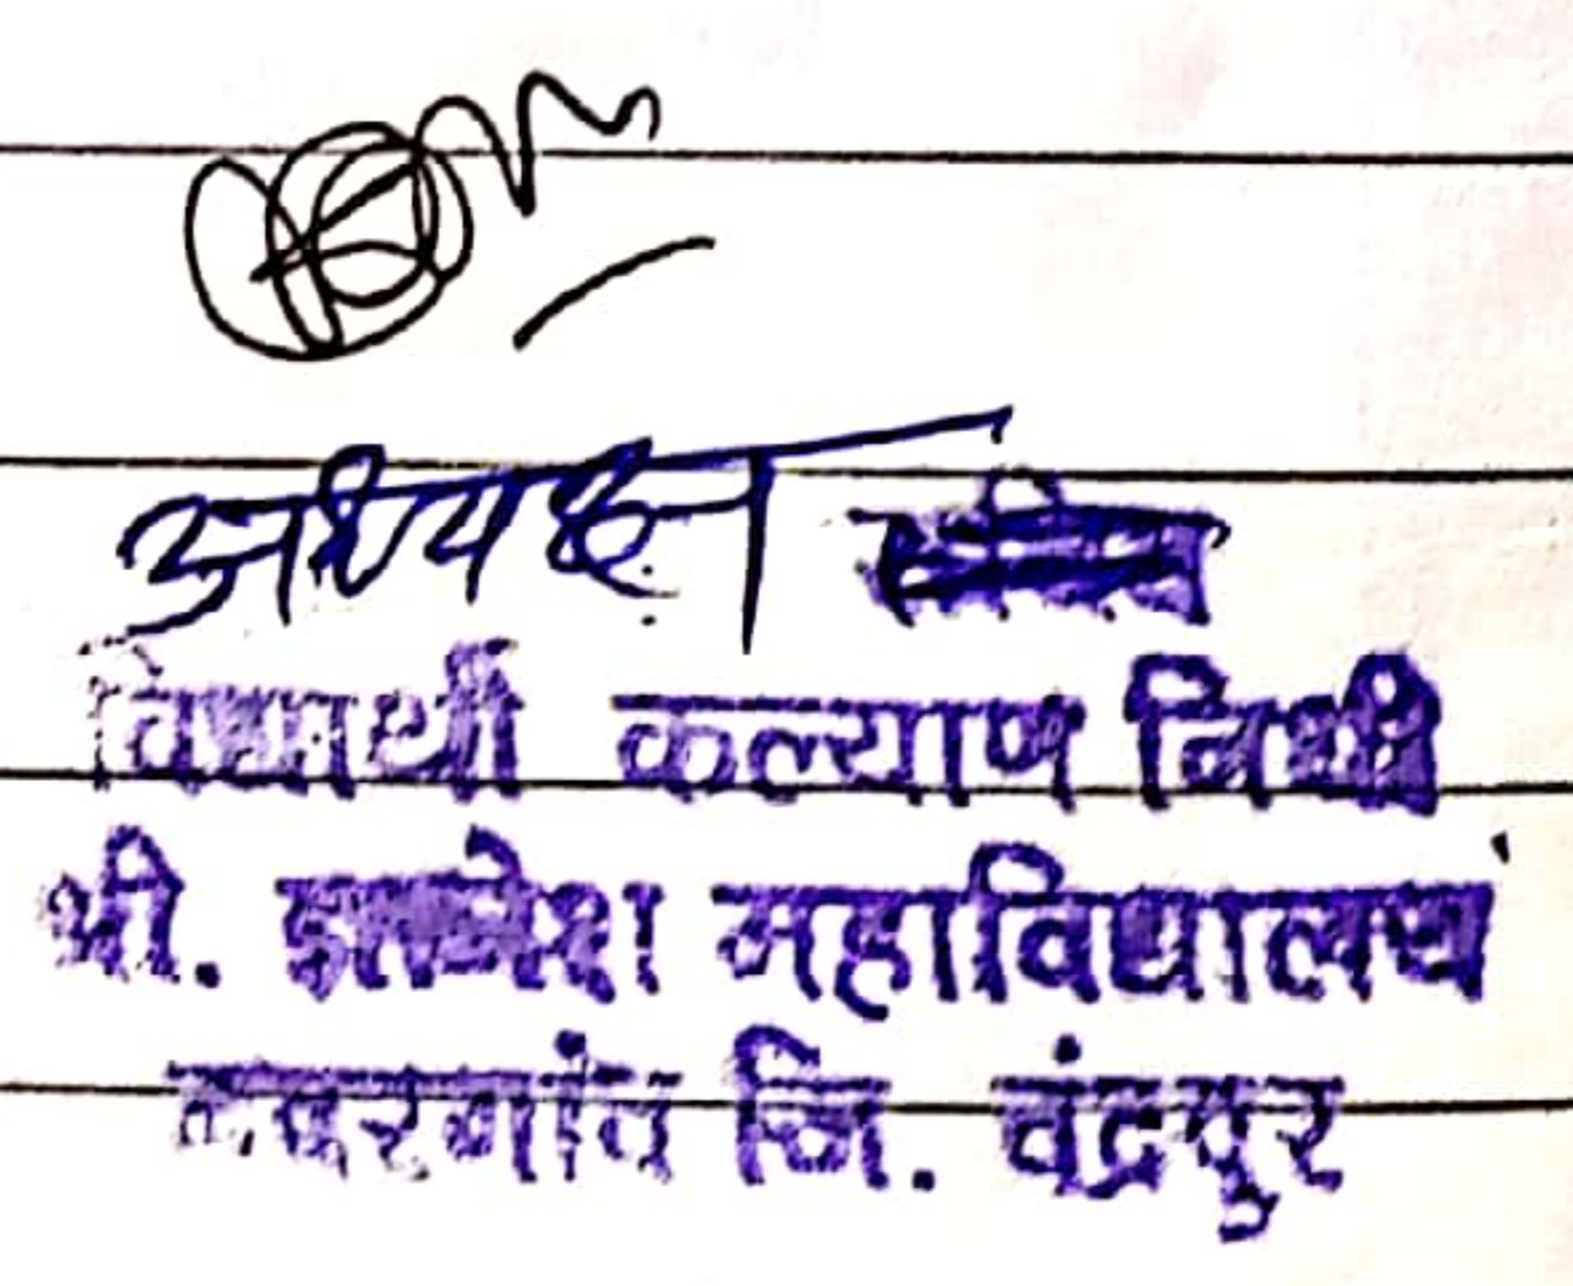 अध्यक्ष
विद्यार्थी कल्याण निधी
श्री. ज्ञानेश महाविद्यालय
नवरगांव जि. चंद्रपुर